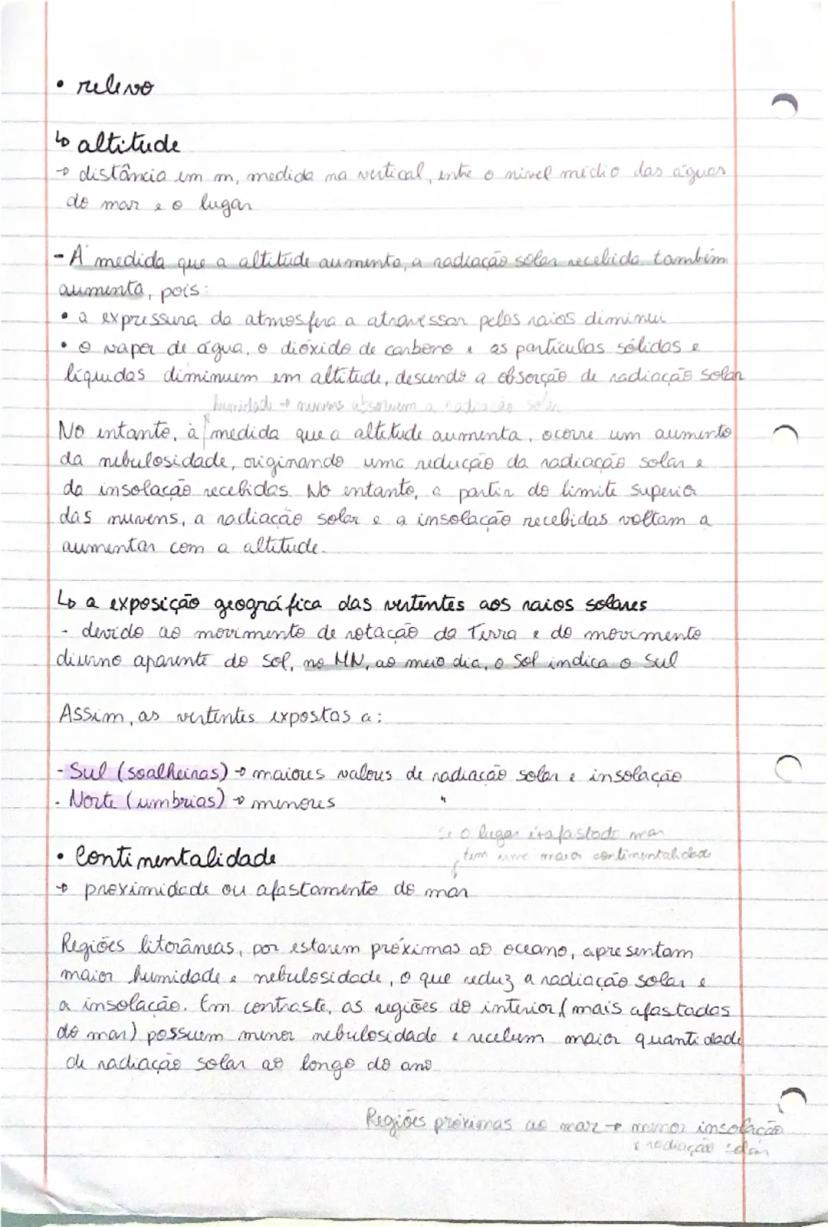 • relevo
↳ altitude
→ distância em m, medida na vertical, entre o nível médio das águas
do mar e o lugar
- À medida que a altitude aumenta, a radiação solar recebida também
aumenta, pois:
• a expressura da atmosfera a atravessar pelos raios diminui
• o vapor de água, o dióxido de carbono e as partículas sólidas e
líquidas diminuem em altitude, descendo a absorção de radiação solar
humidade → nuvens absorvem a radiação solar
No entanto, à medida que a altitude aumenta, ocorre um aumento
da nebulosidade, originando uma redução da radiação solar e
da insolação recebidas. No entanto, a partir do limite superior
das nuvens, a radiação solar e a insolação recebidas voltam a
aumentar com a altitude.
↳ a exposição geográfica das vertentes aos raios solares
- devido ao movimento de rotação da Terra e do movimento
diurno aparente do sol, no HN, ao meio dia, o Sol indica o Sul
Assim, as vertentes expostas a:
- Sul (soalheiras) → maiores valores de radiação solar e insolação
- Norte (umbrias) → menores "
se o lugar afastado mar
tem uma maior continentalidade
• Continentalidade
→ proximidade ou afastamento do mar
Regiões litorâneas, por estarem próximas ao oceano, apresentam
maior humidade e nebulosidade, o que reduz a radiação solar e
a insolação. Em contraste, as regiões do interior (mais afastadas
do mar) possuem menor nebulosidade e recebem maior quantidade
de radiação solar ao longo do ano
Regiões próximas ao mar → menor insolação
e radiação solar